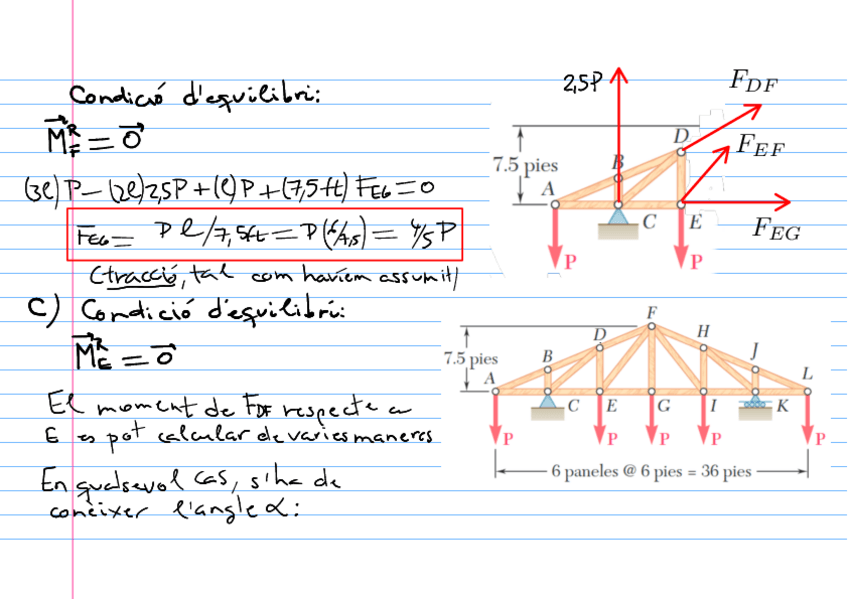 Condició d'equilibri:
M_F^R = 0
(3l)P - (2l)2,5P + (l)P + (7,5ft) F_EG = 0
F_EG = P l/7,5ft = P(6/7,5) = 4/5 P
(tracció, tal com havíem assumit)
C) Condició d'equilibri:
M_E^R = 0
El moment de F_DF respecte a
E es pot calcular de varies maneres
En qualsevol cas, s'ha de
conèixer l'angle α:
2,5P
F_DF
D
F_EF
7.5 pies
B
A
C
E
F_EG
P
P
F
D
H
7.5 pies
B
J
A
L
C
E
G
I
K
P
P
P
P
P
6 paneles @ 6 pies = 36 pies